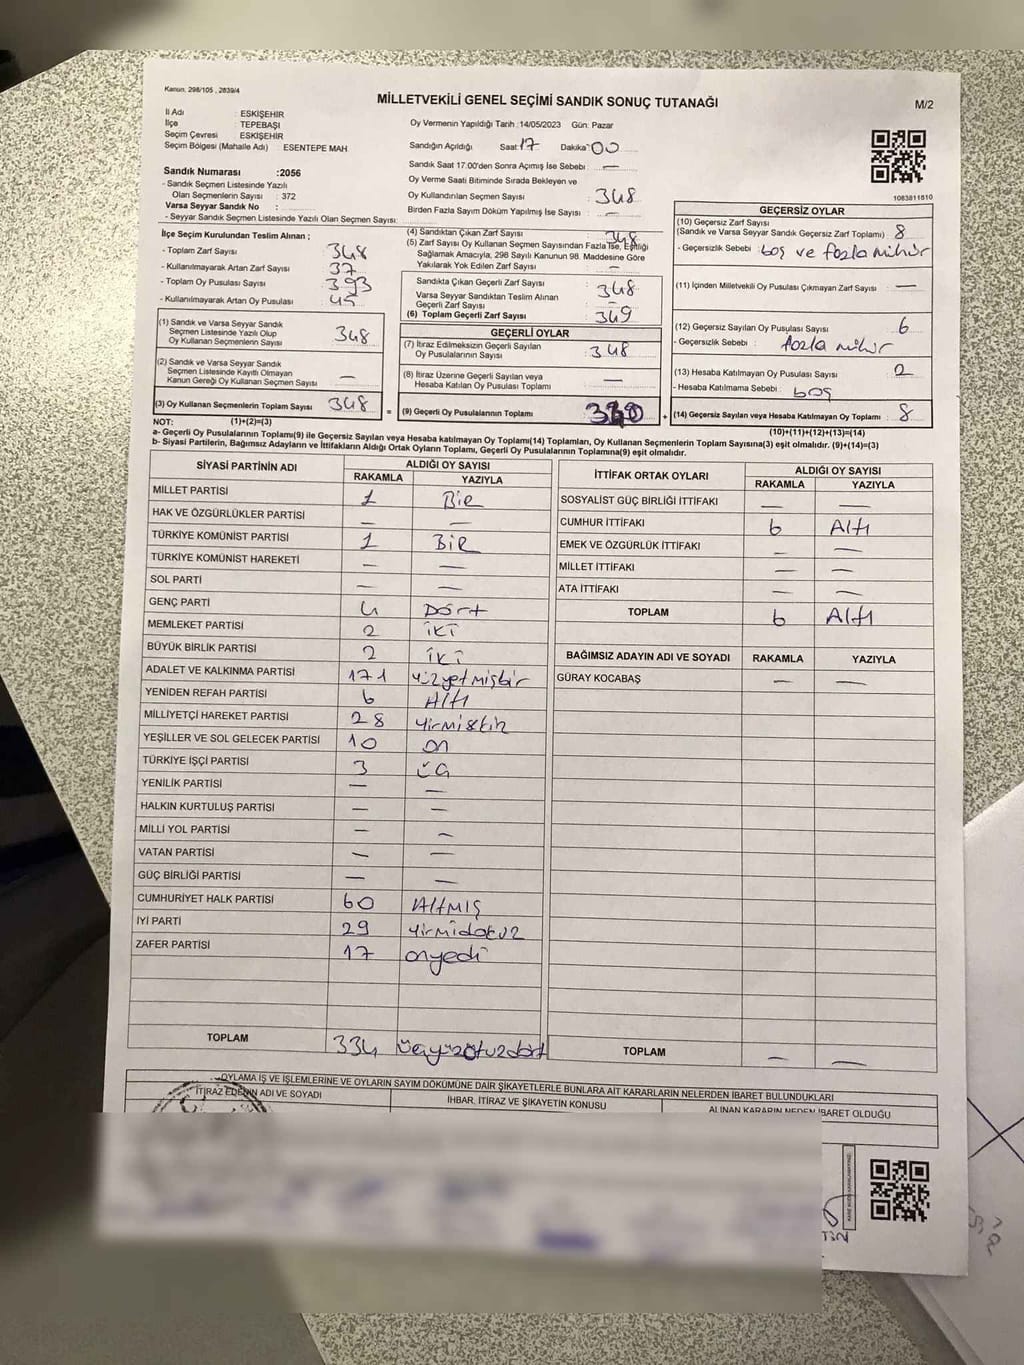 Kanun, 298/105 , 2839/4
MİLLETVEKİLİ GENEL SEÇİMİ SANDIK SONUÇ TUTANAĞI
M/2
İl Adı : ESKİŞEHİR
İlçe : TEPEBAŞI
Seçim Çevresi : ESKİŞEHİR
Seçim Bölgesi (Mahalle Adı) : ESENTEPE MAH.
Oy Vermenin Yapıldığı Tarih :14/05/2023 Gün: Pazar
Sandığın Açıldığı Saat 17 Dakika 00
Sandık Saat 17:00'den Sonra Açımış İse Sebebi : —
Oy Verme Saati Bitiminde Sırada Bekleyen ve
Oy Kullandırılan Seçmen Sayısı : 348
Birden Fazla Sayım Döküm Yapılmış İse Sayısı : —
Sandık Numarası :2056
- Sandık Seçmen Listesinde Yazılı
Olan Seçmenlerin Sayısı : 372
Varsa Seyyar Sandık No :
- Seyyar Sandık Seçmen Listesinde Yazılı Olan Seçmen Sayısı:
1083811810
İlçe Seçim Kurulundan Teslim Alınan ;
- Toplam Zarf Sayısı : 348
- Kullanılmayarak Artan Zarf Sayısı : 37
- Toplam Oy Pusulası Sayısı : 393
- Kullanılmayarak Artan Oy Pusulası : 45
(1) Sandık ve Varsa Seyyar Sandık
Seçmen Listesinde Yazılı Olup
Oy Kullanan Seçmenlerin Sayısı : 348
(2) Sandık ve Varsa Seyyar Sandık
Seçmen Listesinde Kayıtlı Olmayan
Kanun Gereği Oy Kullanan Seçmen Sayısı : —
(3) Oy Kullanan Seçmenlerin Toplam Sayısı : 348
(4) Sandıktan Çıkan Zarf Sayısı : 348
(5) Zarf Sayısı Oy Kullanan Seçmen Sayısından Fazla İse, Eşitliği
Sağlamak Amacıyla, 298 Sayılı Kanunun 98. Maddesine Göre
Yakılarak Yok Edilen Zarf Sayısı : —
Sandıkta Çıkan Geçerli Zarf Sayısı : 348
Varsa Seyyar Sandıktan Teslim Alınan
Geçerli Zarf Sayısı : —
(6) Toplam Geçerli Zarf Sayısı : 349
GEÇERLİ OYLAR
(7) İtiraz Edilmeksizin Geçerli Sayılan
Oy Pusulalarının Sayısı : 348
(8) İtiraz Üzerine Geçerli Sayılan veya
Hesaba Katılan Oy Pusulası Toplamı : —
= (9) Geçerli Oy Pusulalarının Toplamı :
GEÇERSİZ OYLAR
(10) Geçersiz Zarf Sayısı
(Sandık ve Varsa Seyyar Sandık Geçersiz Zarf Toplamı) : 8
- Geçersizlik Sebebi : boş ve fazla mühür
(11) İçinden Milletvekili Oy Pusulası Çıkmayan Zarf Sayısı : —
(12) Geçersiz Sayılan Oy Pusulası Sayısı : 6
- Geçersizlik Sebebi : fazla mühür
(13) Hesaba Katılmayan Oy Pusulası Sayısı : 2
- Hesaba Katılmama Sebebi : boş
+ (14) Geçersiz Sayılan veya Hesaba Katılmayan Oy Toplamı : 8
NOT: (1)+(2)=(3) (10)+(11)+(12)+(13)=(14)
a- Geçerli Oy Pusulalarının Toplamı(9) ile Geçersiz Sayılan veya Hesaba katılmayan Oy Toplamı(14) Toplamları, Oy Kullanan Seçmenlerin Toplam Sayısına(3) eşit olmalıdır. (9)+(14)=(3)
b- Siyasi Partilerin, Bağımsız Adayların ve İttifakların Aldığı Ortak Oyların Toplamı, Geçerli Oy Pusulalarının Toplamına(9) eşit olmalıdır.
SİYASİ PARTİNİN ADI ALDIĞI OY SAYISI
RAKAMLA YAZIYLA
MİLLET PARTİSİ 1 BiR
HAK VE ÖZGÜRLÜKLER PARTİSİ — —
TÜRKİYE KOMÜNİST PARTİSİ 1 BiR
TÜRKİYE KOMÜNİST HAREKETİ — —
SOL PARTİ — —
GENÇ PARTİ 4 Dört
MEMLEKET PARTİSİ 2 iKi
BÜYÜK BİRLİK PARTİSİ 2 iKi
ADALET VE KALKINMA PARTİSİ 171 yüzyetmişbir
YENİDEN REFAH PARTİSİ 6 Altı
MİLLİYETÇİ HAREKET PARTİSİ 28 yirmisekiz
YEŞİLLER VE SOL GELECEK PARTİSİ 10 on
TÜRKİYE İŞÇİ PARTİSİ 3 üç
YENİLİK PARTİSİ — —
HALKIN KURTULUŞ PARTİSİ — —
MİLLİ YOL PARTİSİ — —
VATAN PARTİSİ — —
GÜÇ BİRLİĞİ PARTİSİ — —
CUMHURİYET HALK PARTİSİ 60 Altmış
İYİ PARTİ 29 yirmidokuz
ZAFER PARTİSİ 17 onyedi
TOPLAM 334 üçyüzotuzdört
İTTİFAK ORTAK OYLARI ALDIĞI OY SAYISI
RAKAMLA YAZIYLA
SOSYALİST GÜÇ BİRLİĞİ İTTİFAKI — —
CUMHUR İTTİFAKI 6 Altı
EMEK VE ÖZGÜRLÜK İTTİFAKI — —
MİLLET İTTİFAKI — —
ATA İTTİFAKI — —
TOPLAM 6 Altı
BAĞIMSIZ ADAYIN ADI VE SOYADI RAKAMLA YAZIYLA
GÜRAY KOCABAŞ — —
TOPLAM — —
OYLAMA İŞ VE İŞLEMLERİNE VE OYLARIN SAYIM DÖKÜMÜNE DAİR ŞİKAYETLERLE BUNLARA AİT KARARLARIN NELERDEN İBARET BULUNDUKLARI
İTİRAZ EDENİN ADI VE SOYADI İHBAR, İTİRAZ VE ŞİKAYETİN KONUSU ALINAN KARARIN NEDEN İBARET OLDUĞU